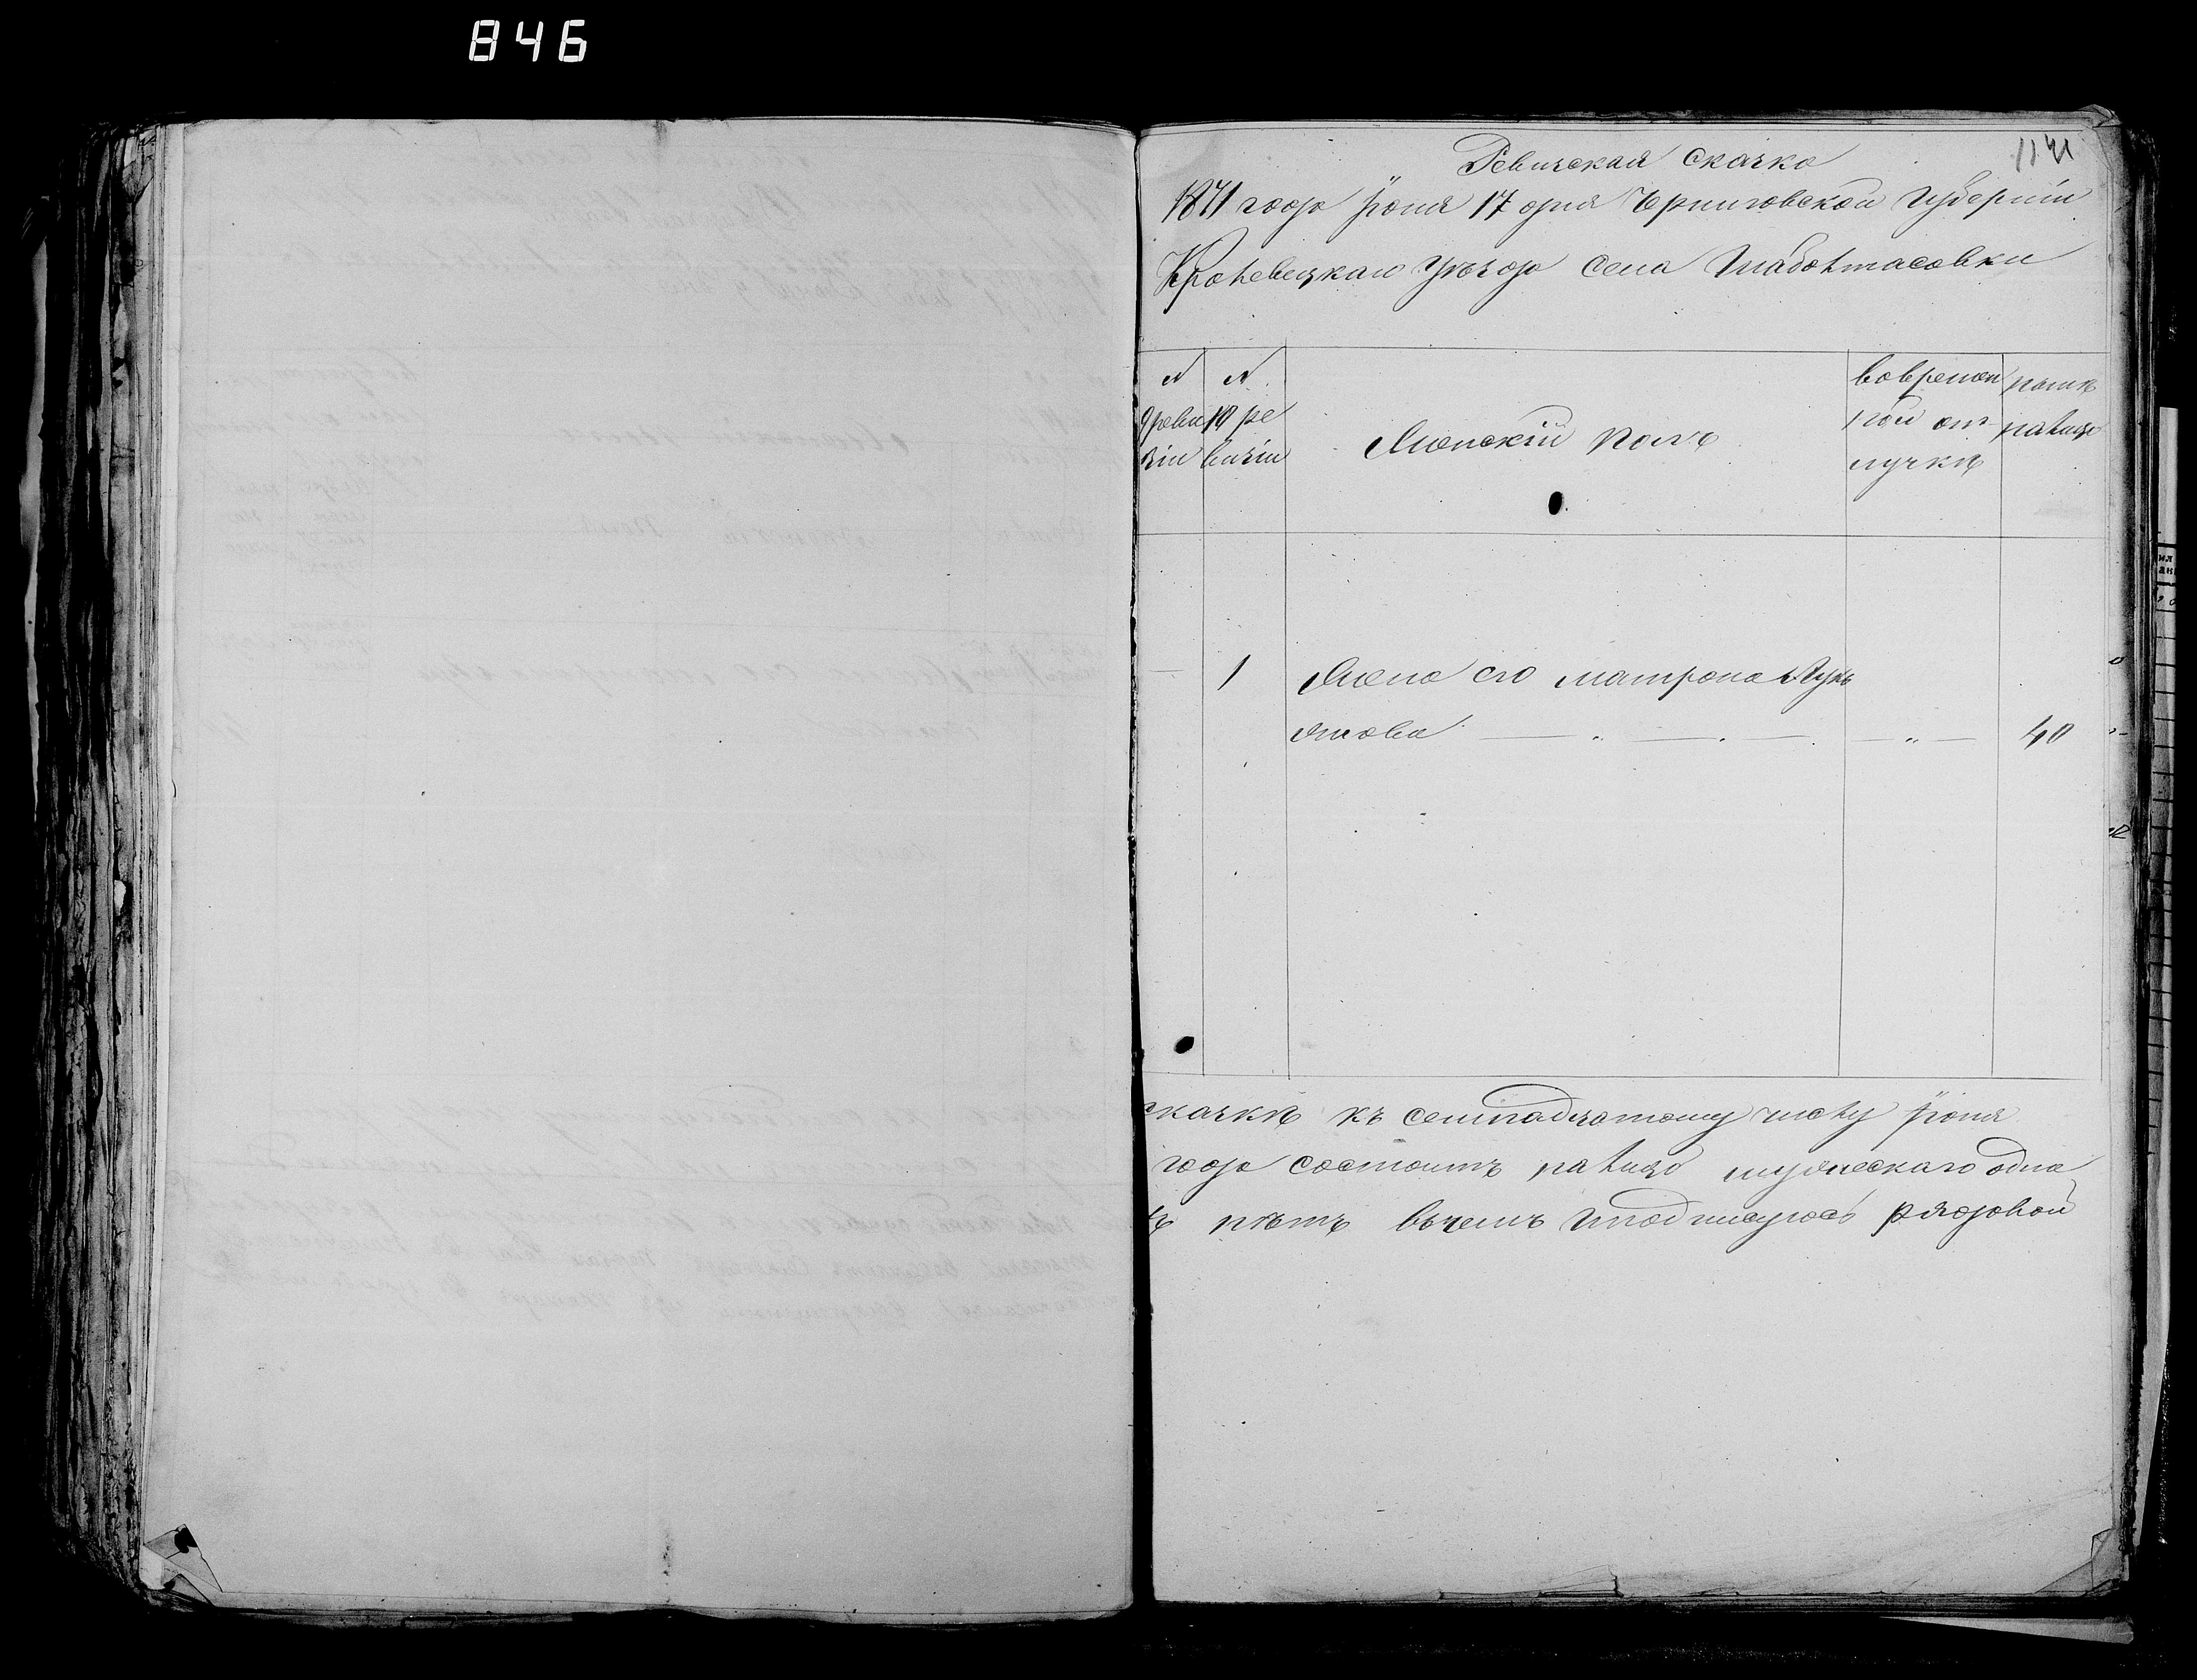 846
1141
Ревизская скаска
1871 года Іюня 17 дня Чрниговской губерніи
Кролевецкаго уѣзда села
N
9 реви
зіи
N
10 ре
визіи
Женскій полъ
вовремен
ной от
лучкѣ
нынѣ
налицо
— 1 Жена его матрона Лукь
янова — „ — . — . — „ — 40
скаскѣ къ семнадцатому числу Іюня
года состоитъ налицо мужескаго одна
нѣтъ въчемъ иподписуюсь рядовой